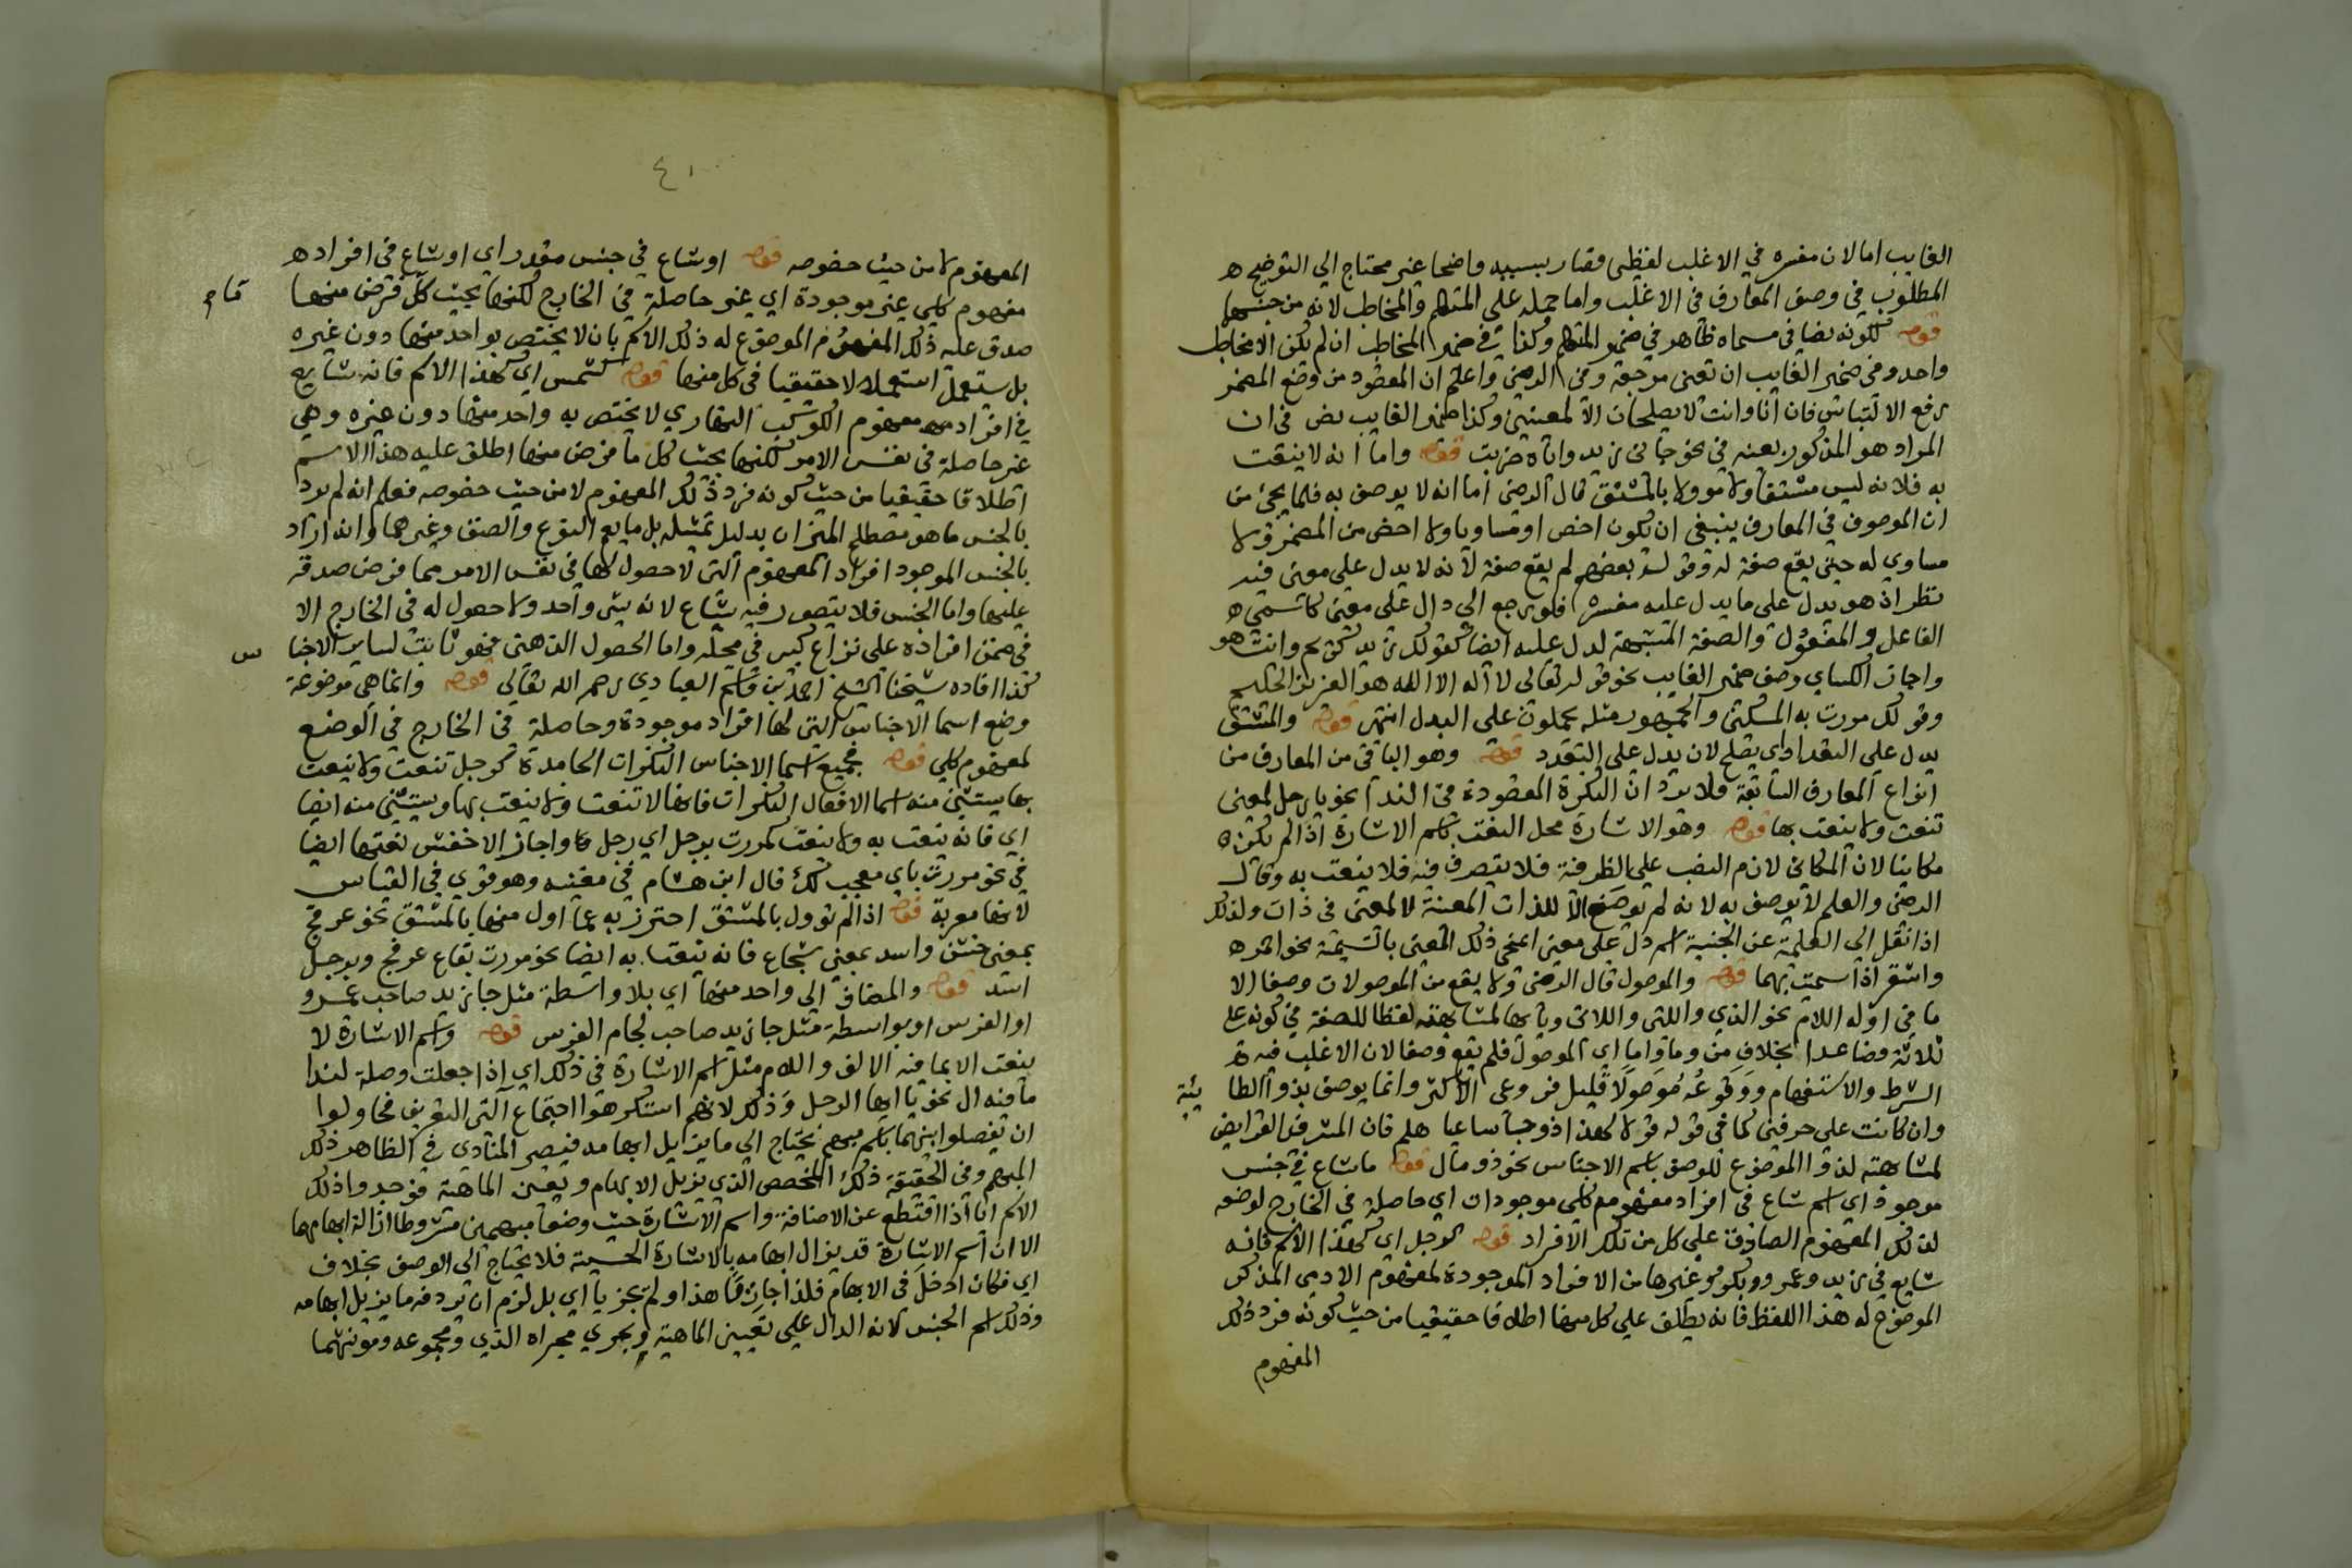 الغايب اما لان مفسره في الاغلب لفظي فصار بسببه واضحا غير محتاج الي التوضيح
المطلوب في وصف المعارف في الاغلب واما حمله علي المتكلم والمخاطب لانه من جنسهما
قوله لكونه نصا في مسماه ظاهر في ضمير المتكلم وكذا في ضمير المخاطب ان لم يكن الا مخاطب
واحد وفي ضمير الغايب ان تعين مرجعه وفي الرضي واعلم ان المقصود من وضع المضمر
رفع الالتباس فان انا وانت لا يصلحان الا لمعينين وكذا ضمير الغايب نص في ان
المراد هو المذكور بعينه في نحو جاني زيد واياه ضربت قوله واما انه لا ينعت
به فلانه ليس مشتقا ولا مؤولا بالمشتق قال الرضي اما انه لا يوصف به فلما يجئ من
ان الموصوف في المعارف ينبغي ان يكون اخص او مساويا ولا اخص من المضمر ولا
مساوي له حتي يقع صفة له وقول بعضهم لم يقع صفة لانه لا يدل علي معني فيه
نظر اذ هو يدل علي ما يدل عليه مفسره فلو رجع الي دال علي معني كاسمي
الفاعل والمفعول والصفة المشبهة لدل عليه ايضا كقولك زيد كريم وانت هو
واجاز الكساي وصف ضمير الغايب نحو قوله تعالى لا اله الا هو العزيز الحكيم
وقولك مررت به المسكين والجمهور مثله يحملون على البدل انتهى قوله والمشتق
يدل علي التعدد اي يصلح لان يدل علي التعدد قوله وهو الباقي من المعارف من
انواع المعارف السابقة فلا يرد ان النكرة المقصودة في الندا نحو يا رجل لمعين
تنعت ولا ينعت بها قوله وهو الاشارة محل النعت باسم الاشارة اذا لم يكن
مكانيا لان المكاني لازم النصب علي الظرفية فلا يتصرف فيه فلا ينعت به وقال
الرضي والعلم لا يوصف به لانه لم يوضع الا للذات المعينة لا لمعني في ذات ولذلك
اذا نقل الي العلمية عن الجنسية اسم دل علي معني امحي ذلك المعني بالتسمية نحو احمر
واشقر اذا سميت بهما قوله والموصول قال الرضي ولا يقع من الموصولات وصفا الا
ما في اوله اللام نحو الذي والتي واللاتي وبابها لمشابهته لفظا للصفة في كونه علي
ثلاثة فصاعدا بخلاف من وما واما اي الموصول فلم يقع وصفا لان الاغلب فيه
الشرط والاستفهام ووقوعه موصولا قليل فروعي الاكثر وانما يوصف بذو الطا ئية
وان كانت علي حرفين كما في قوله قولا لهذا المرء ذو جاء ساعيا هلم فان المشرفي الفرائض
لمشابهته لذو الموضوع للوصف باسم الاجناس نحو ذو مال قوله ما شاع في جنس
موجود اي اسم شاع في افراد مفهوم كلي موجودات اي حاصلة في الخارج لوضعه
لذلك المفهوم الصادق علي كل من تلك الافراد قوله كرجل اي كهذا الاسم فانه
شايع في زيد وعمرو وبكر وغيرها من الافراد الموجودة لمفهوم الادمي المذكر
الموضوع له هذا اللفظ فانه يطلق علي كل منها اطلاقا حقيقيا من حيث كونه فرد ذلك
المفهوم
٤١
المفهوم لا من حيث خصوصه قوله او شاع في جنس مقدر اي او شاع في افراد
مفهوم كلي غير موجودة اي غير حاصلة في الخارج لكنها بحيث كل فرض منها
صدق عليه ذلك المفهوم الموضوع له ذلك الاسم بان لا يختص بواحد منها دون غيره
بل يستعمل استعمالا حقيقيا في كل منها قوله كشمس اي كهذا الاسم فانه شايع
في افراد مفهوم الكوكب النهاري لا يختص به واحد منها دون غيره وهي
غير حاصلة في نفس الامر لكنها بحيث كل ما فرض منها اطلق عليه هذا الاسم
اطلاقا حقيقيا من حيث كونه فرد ذلك المفهوم لا من حيث خصوصه فعلم انه لم يرد
بالجنس ما هو مصطلح الميزان بدليل تمثيله بل ما يعم النوع والصنف وغيرهما وانه اراد
بالجنس الموجود افراد المفهوم التي لا حصول لها في نفس الامر مما فرض صدقه
عليها واما الجنس فلا يتصور فيه شياع لانه شئ واحد ولا حصول له في الخارج الا
في ضمن افراده علي نزاع كبير في محله واما الحصول الذهني فهو ثابت لساير الاجنا س
كذا افاده شيخنا الشيخ احمد بن قاسم العبادي رحمه الله تعالي قوله وانما هي موضوعة
وضع اسما الاجناس التي لها افراد موجودة وحاصلة في الخارج في الوضع
لمفهوم كلي قوله فجميع اسما الاجناس النكرات الجامدة كرجل تنعت ولا ينعت
بها يستثني منه اسما الافعال النكرات فانها لا تنعت ولا ينعت بها ويستثني منه ايضا
اي فانه ينعت به ولا ينعت كمررت برجل اي رجل وما واجاز الاخفش نعتها ايضا
في نحو مررت باي معجب لك قال ابن هشام في مغنيه وهو قوي في القياس
لانها معربة قوله اذا لم تؤول بالمشتق احترز به عما اول منها بالمشتق نحو عرفج
بمعني خشن واسد بمعني شجاع فانه ينعت به ايضا نحو مررت بقاع عرفج وبرجل
اسد قوله والمضاف الي واحد منها اي بلا واسطة مثل جا زيد صاحب عمرو
او الفرس او بواسطة مثل جا زيد صاحب لجام الفرس قوله واسم الاشارة لا
ينعت الا بما فيه الالف واللام مثل اسم الاشارة في ذلك اي اذا جعلت وصلة لندا
ما فيه ال نحو يا ايها الرجل وذلك لانهم استنكرهوا اجتماع التي التعريف فحاولوا
ان يفصلوا بينهما باسم مبهم يحتاج الي ما يزيل ابهامه فيصير المنادي في الظاهر ذلك
المبهم وفي الحقيقة ذلك المخصص الذي يزيل الابهام ويعين الماهية فوجدوا ذلك
الاسم ايا اذا اقتطع عن الاضافة واسم الاشارة حيث وضعا مبهمين مشروطا ازالة ابهامهما
الا ان اسم الاشارة قد يزال ابهامه بالاشارة الحسية فلا يحتاج الي الوصف بخلاف
اي فكان ادخل في الابهام فلذا جاز يا هذا ولم يجز يا اي بل لزم ان يردفه ما يزيل ابهامه
وذلك اسم الجنس لانه الدال علي تعيين الماهية ويجري مجراه الذي ومجموعه ومؤنثهما